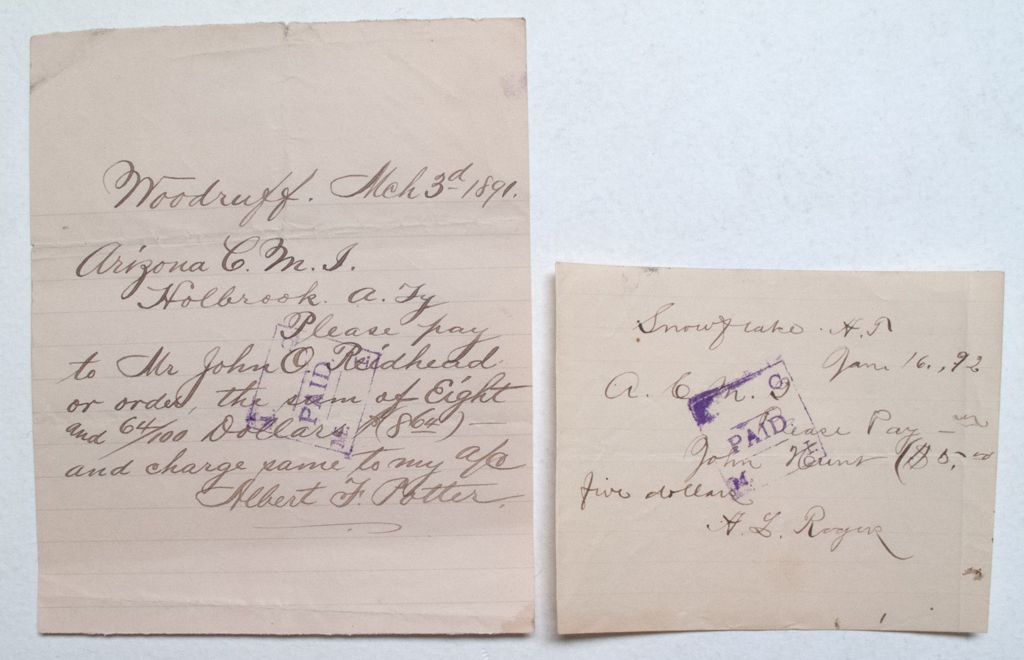 Woodruff. Mch 3d 1891.
Arizona C. M. I.
Holbrook. A. Ty
Please pay
to Mr John O. Reidhead
or order, the sum of Eight
and 64/100 Dollars. ($8 64)
and charge same to my a/c
Albert F. Potter.
PAID
M
Snowflake. A.T
Jan. 16., 92
A. C. M. I
Please Pay
John Hunt ($5,
five dollars
A. L. Rogers
C
PAID
M I